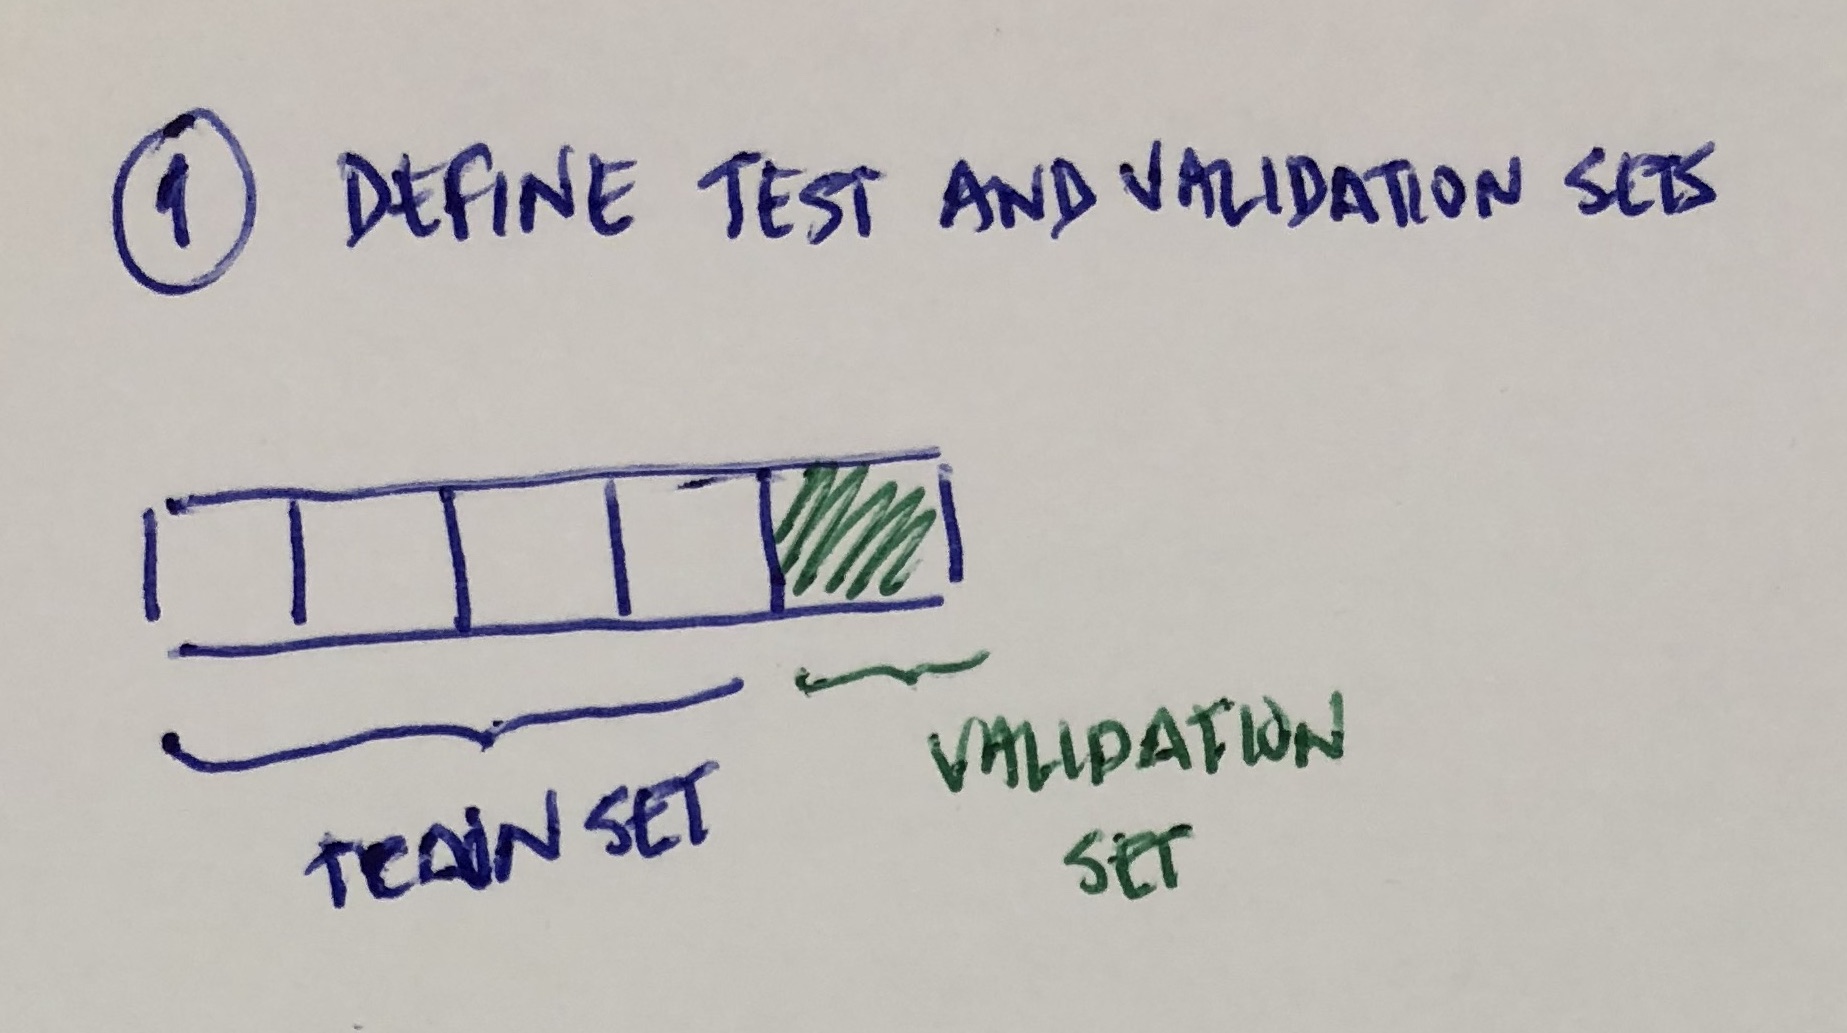 1 DEFINE TEST AND VALIDATION SETS
TRAIN SET
VALIDATION
SET